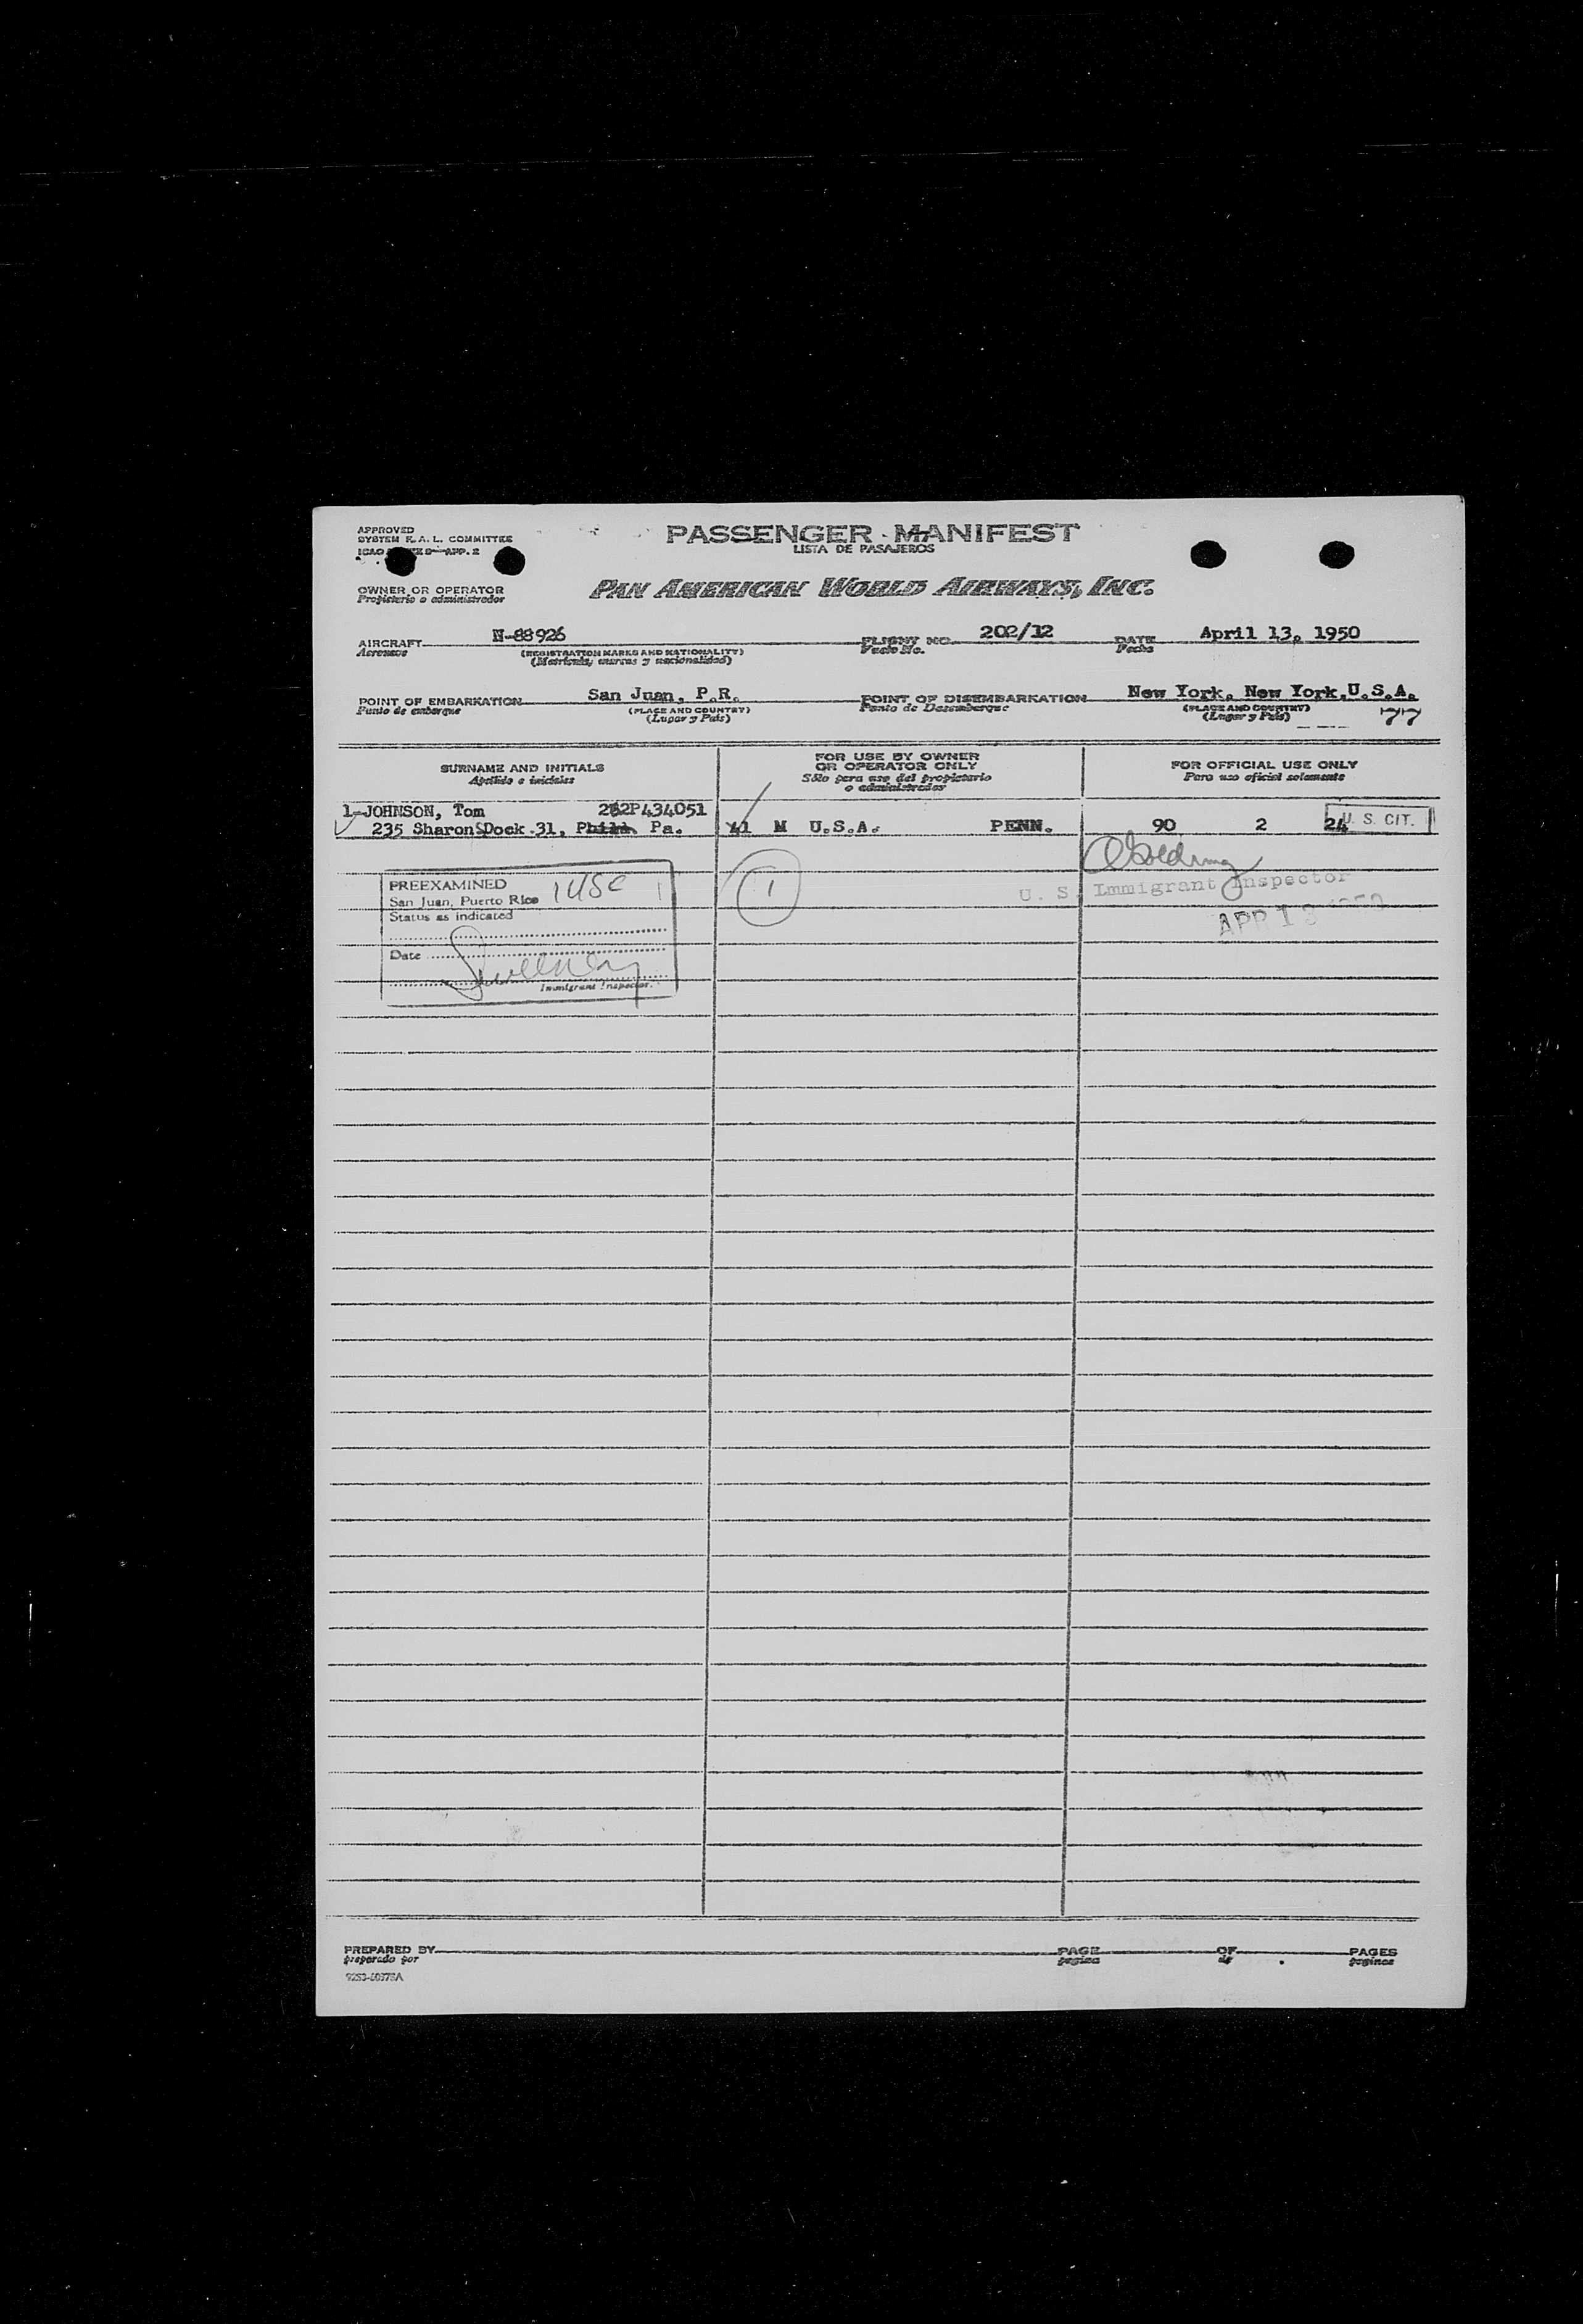 APPROVED
SYSTEM F. A. L. COMMITTEE
PASSENGER MANIFEST
LISTA DE PASAJEROS
OWNER OR OPERATOR
Propietario o administrador
PAN AMERICAN WORLD AIRWAYS, INC.
AIRCRAFT N-88926 FLIGHT NO. 202/12 DATE April 13, 1950
Aeronave (REGISTRATION MARKS AND NATIONALITY) Vuelo No. Fecha
(Matrícula, marcas y nacionalidad)
POINT OF EMBARKATION San Juan, P.R. POINT OF DISEMBARKATION New York, New York, U.S.A.
Punto de embarque (PLACE AND COUNTRY) Punto de Desembarque (PLACE AND COUNTRY) 77
(Lugar y País) (Lugar y País)
SURNAME AND INITIALS FOR USE BY OWNER OR OPERATOR ONLY FOR OFFICIAL USE ONLY
Apellido e iniciales Sólo para uso del propietario o administrador Para uso oficial solamente
1-JOHNSON, Tom 2P434051
235 Sharon Dock 31, Phila. Pa. 41 M U.S.A. PENN. 90 2 24 U. S. CIT.
PREEXAMINED 1 USC
San Juan, Puerto Rico
Status as indicated
Date
Immigrant Inspector.
1
U. S. Immigrant Inspector
APR 13 1950
PREPARED BY PAGE OF PAGES
preparado por pagina de paginas